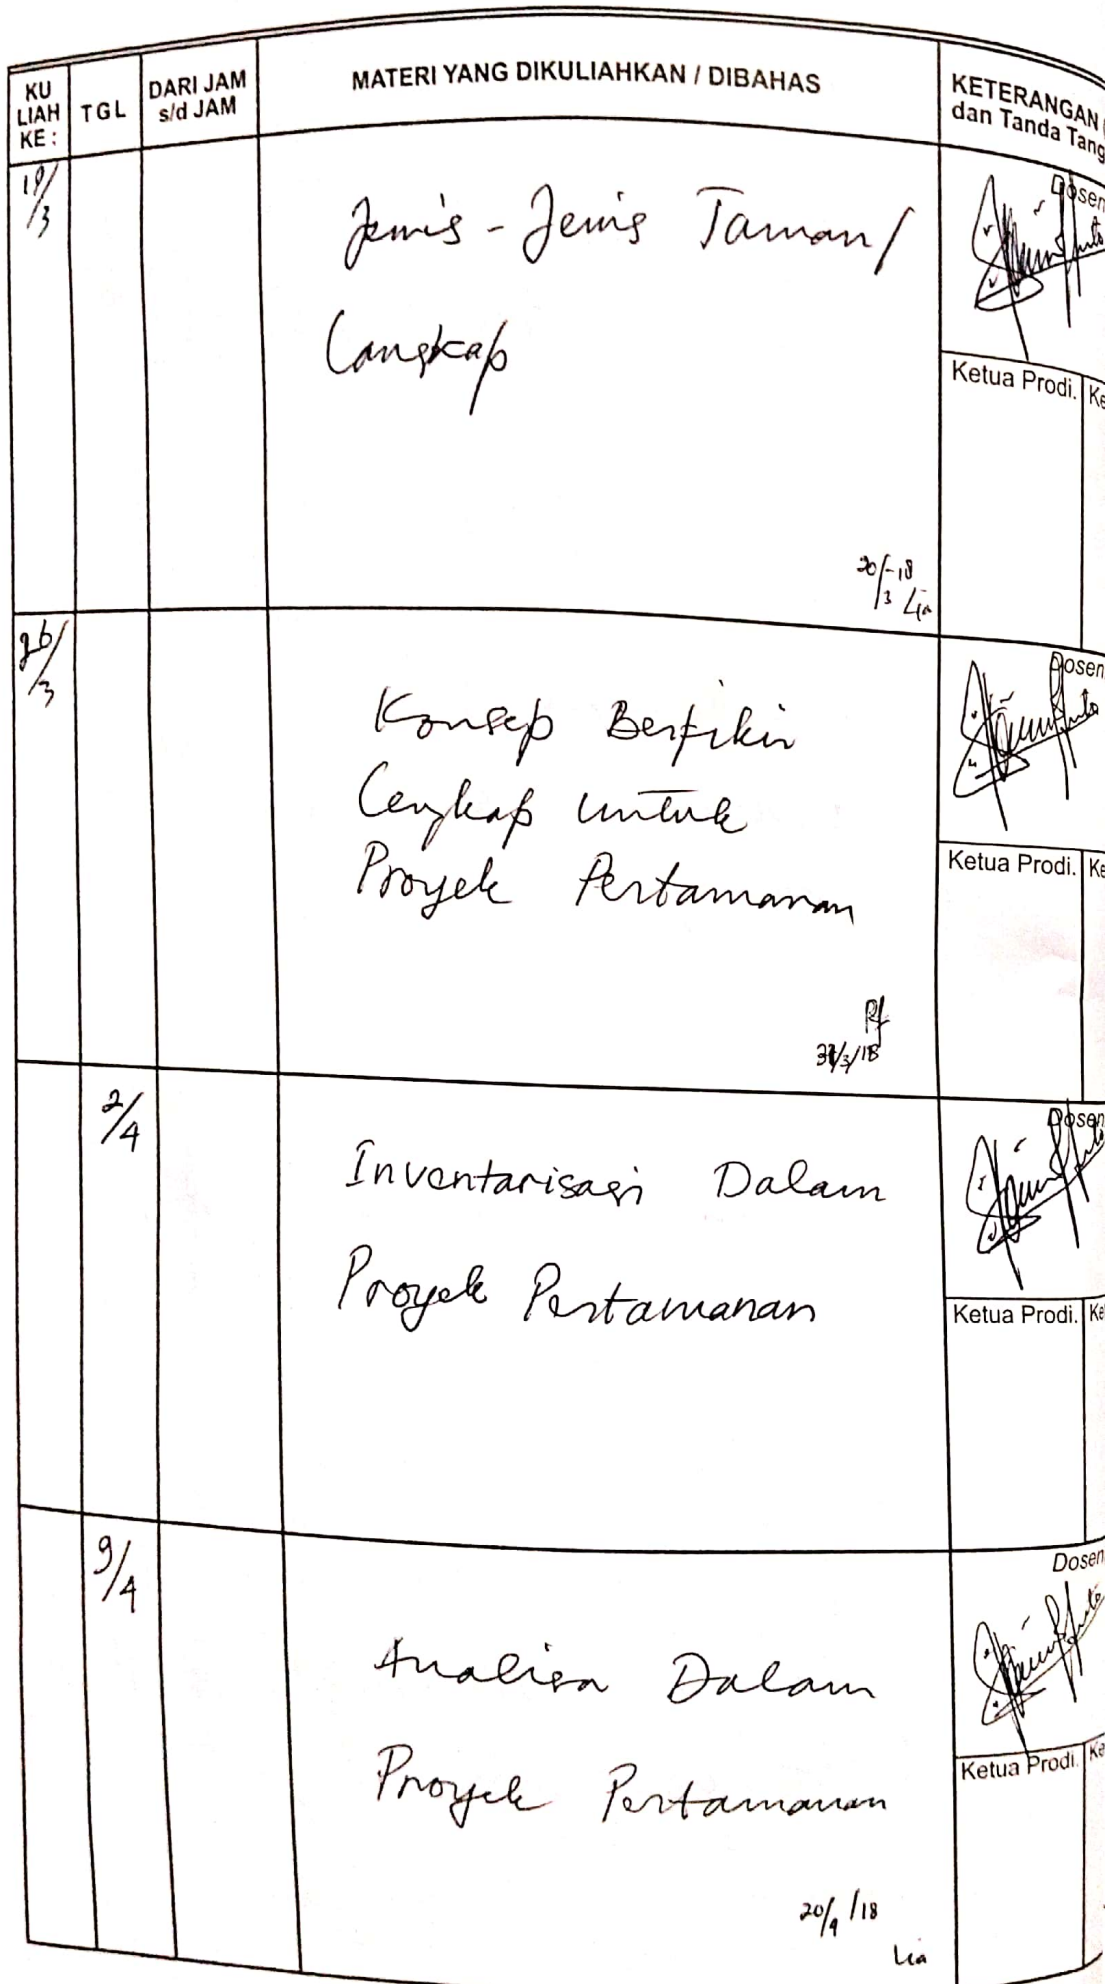 KU LIAH KE :
TGL
DARI JAM s/d JAM
MATERI YANG DIKULIAHKAN / DIBAHAS
KETERANGAN
dan Tanda Tang
19/3
Jenis - Jenis Taman /
Langkap
Dosen
Ketua Prodi.
Ke
20/3-18
Lia
26/3
Konsep Berfikir
Lengkap untuk
Proyek Pertamanan
Dosen
Ketua Prodi.
Ke
31/3/18
2/4
Inventarisasi Dalam
Proyek Pertamanan
Dosen
Ketua Prodi.
Ke
9/4
Analisa Dalam
Proyek Pertamanan
Dosen
Ketua Prodi.
Ke
20/4/18
Lia